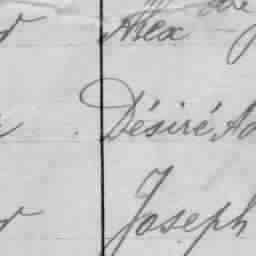 Alex
Désiré Ad
Joseph